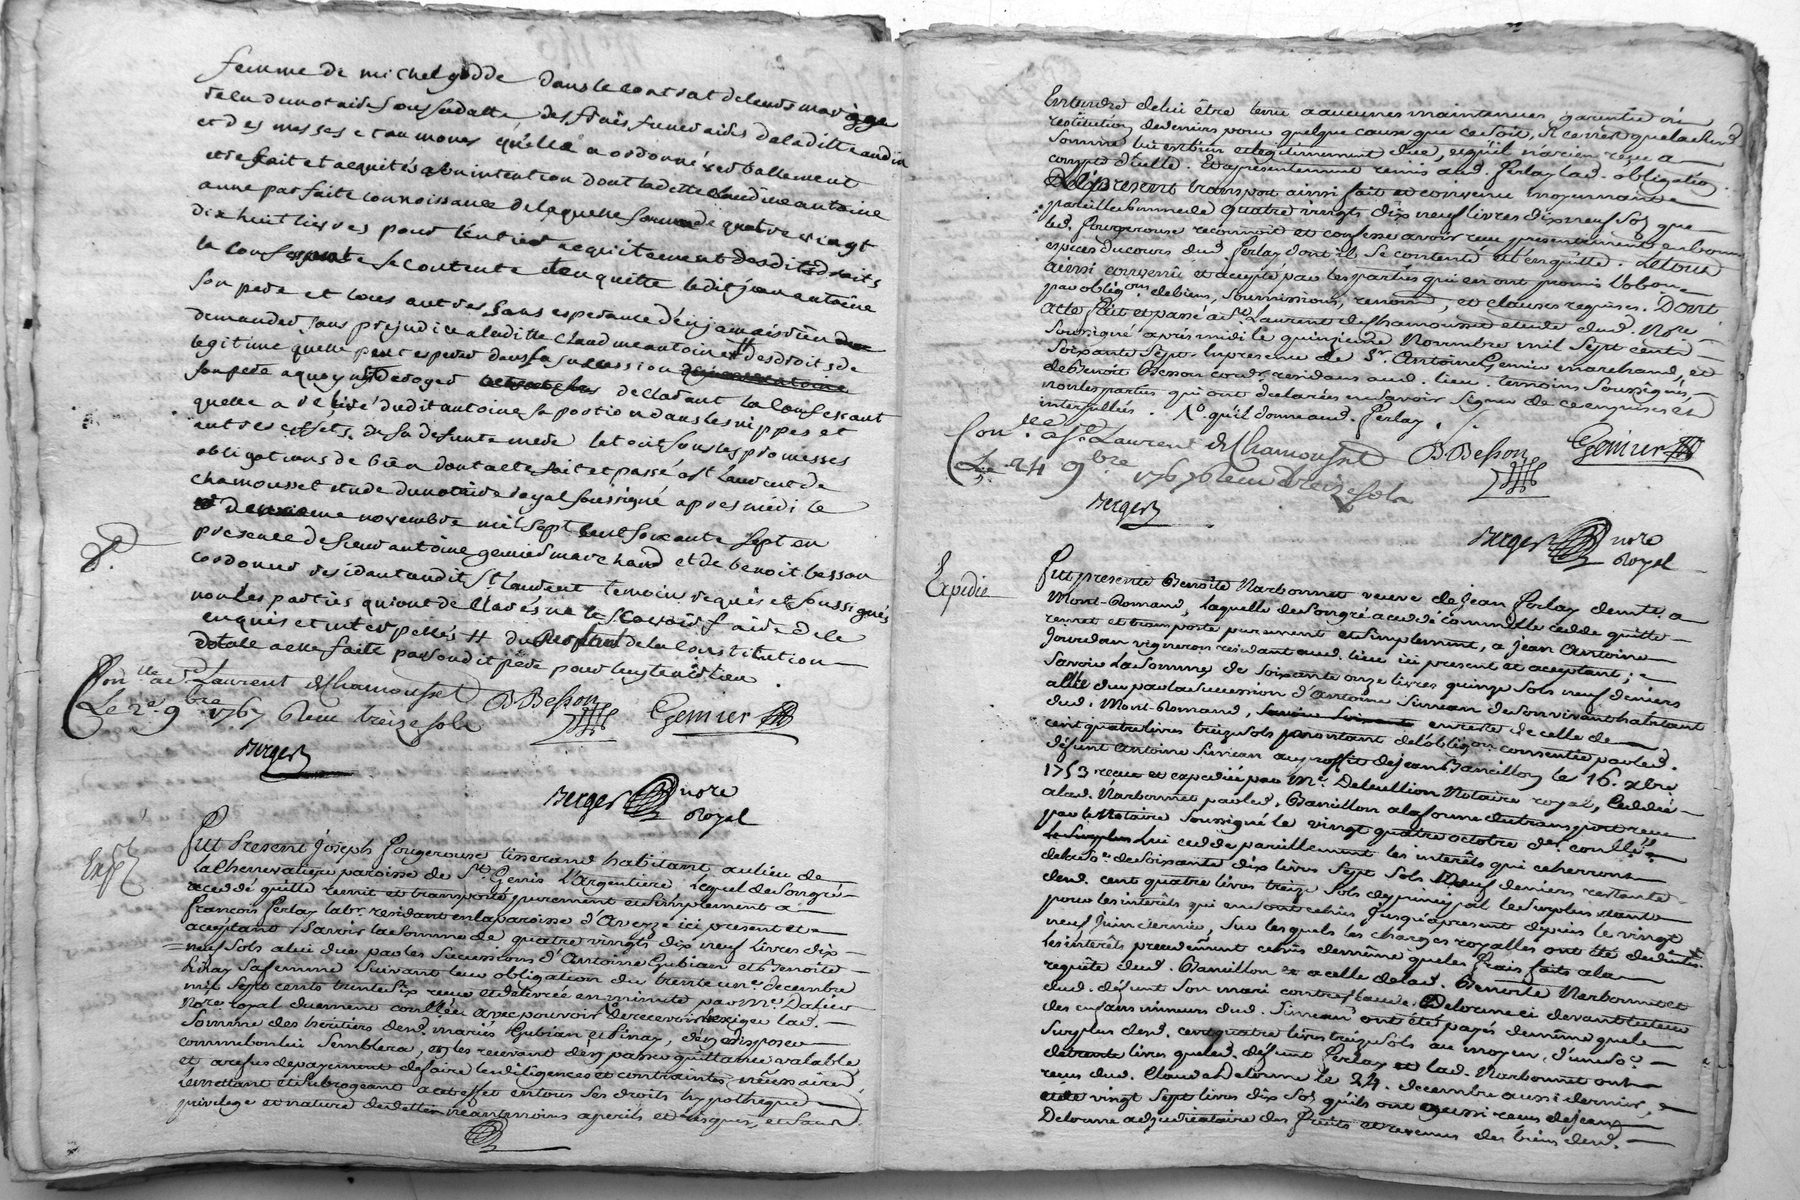 femme de michel godde dans le contrat de leurs mariage
recu du notaire soussigné des frais funeraires de laditte
et des messes et aumones quelle a ordonné verballement
estre fait et acquités a son intention dont ladette Claudine antoine
a une parfaite connoissance de laquelle somme de quatre vingt
dix huit livres pour l'entier acquitement desdits droits
la confessante se contente et en quitte ledit jean antoine
son pere et tous autres sans esperance d'en jamais rien
demander sans prejudice a laditte Claudine antoine des droits de
legitime quelle peut esperer dans la succession
son pere a quoy n'est deroger declarant la confessant
quelle a retiré dudit antoine sa portion dans les nippes et
autres effets de sa defunte mere le tout sous les promesses
obligations de bien dont acte fait et passé a st Laurent de
chamousset etude du notaire royal soussigné apres midi le
deuxieme novembre mil sept cent soixante sept en
presence de sieur antoine genier marchand et de benoit besson
cordonnier residant audit st laurent temoin requis et soussignés
non les parties qui ont declarés ne le scavoir faire de ce
enquis et interpellés # du de la constitution
dotalle a elle faitte par sondit pere pour
Conlle a st Laurent de Chamousset
Le 2e 9bre 1767 Reçu treize sols
B Besson Genier
Berger
Berger nore
Royal
Exp.
Fut Present Joseph Fougerouse tisserand habitant au lieu de
La Chervaliere paroisse de St Genis L'Argentiere, Lequel de son gré
a cedé quitte remit et transporté purement et simplement a
François Ferlay labr. residant en la paroisse d'Aveize ici present et
acceptant / Savoir la somme de quatre vingts dix neuf livres dix
neuf sols a lui due par les successions d'Antoine Gubian et Benoite
Pinay sa femme suivant leur obligation du trente un decembre
mil sept cents trente six reçue et delivrée en minute par Me Dalier
Nore royal duement conllée avec pouvoir de recevoir et exiger lad.
somme des heritiers desd. mariés Gubian et Pinay, d'en disposer
comme bon lui semblera, en les recevant d'en passer quittance valable
et a refus de payement de faire les diligences et contraintes nécessaires,
Le mettant et subrogeant a cet effet en tous ses droits hypotheque
privilege et nature de dette néantmoins a perils et risques, et sans
Entendre de lui être tenu a aucunes maintenues garantie ni
restitution de deniers pour quelque cause que ce soit, si ce n'est que lad.
somme lui est bien et legitimement due, et qu'il n'a rien reçu a
compte d'icelle. Et a présentement remis aud. Ferlay lad. obligation.
Le présent transport ainsi fait et convenu moyennant
pareille somme de quatre vingts dix neuf livres dix neuf sols que
led. Fougerouse reconnoit et confesse avoir reçu presentement en bonnes
especes du cours dud. Ferlay dont il se contente et l'en quitte. Le tout
ainsi convenu et accepté par les parties qui en ont promis l'obon
par obligons de biens, soumissions, renons, et clauses requises. Dont
acte fait et passé a St Laurent de Chamousset etude dud. Nore
soussigné après midi le quinzieme Novembre mil sept cents
soixante sept. En presence de Sr Antoine Genier marchand, et
de Benoit Besson cordr. residans aud. lieu. temoins soussignés,
non les parties qui ont declarées ne savoir signer de ce enquises et
interpellées.
Conlle a St Laurent de Chamousset
Le 24 9bre 1767 Reçu treize sols
B Besson Genier
Berger
Berger nore
Royal
Expedié
Fut presente Benoite Narbonnet veuve de Jean Ferlay demte a
Mont-Romand, laquelle de son gré a cedé comme elle cedde quitte
remet et transporte purement et simplement, a Jean Antoine
Jourdan vigneron residant aud. lieu ici present et acceptant;
Savoir La somme de soixante onze livres quinze sols neuf deniers
a elle due par la succession d'Antoine Simean de son vivant habitant
aud. Mont-Romand, en reste de celle de
cent quatre livres treize sols montant de l'obligon consentie par led.
défunt Antoine Simean au profit de Jean Bancillon le 16. xbre
1753 reçue et expediée par Me Deleullion Notaire royal, Ceddée
a lad. Narbonnet par led. Bancillon a la forme du transport reçu
par le Notaire soussigné le vingt quatre octobre der. conllé;
Lui cedde pareillement les interêts qui cherront
de lad. se. de soixante dix livres sept sols neuf deniers restante
desd. cent quatre livres treize sols de principal le surplus étant
pour les interêts qui en sont échus jusqu'a present depuis le vingt
neuf Juin dernier, sur lesquels les charges royalles ont été deduites
Les interêts precedemment echus de même que les frais faits a la
requête dud. Bancillon et a celle de lad. Benoite Narbonnet et
dud. défunt son mari contre Claude Delorme ci devant tuteur
des enfans mineurs dud. Simean ont été payés de même que le
surplus desd. cent quatre livres treize sols au moyen d'une se.
de trente livres que led. défunt Ferlay et lad. Narbonnet ont
reçus dud. Claude Delorme le 24. decembre aussi dernier,
et de vingt sept livres dix sols qu'ils ont aussi reçus de Jean
Delorme adjudicataire des fruits et revenus des biens dud.